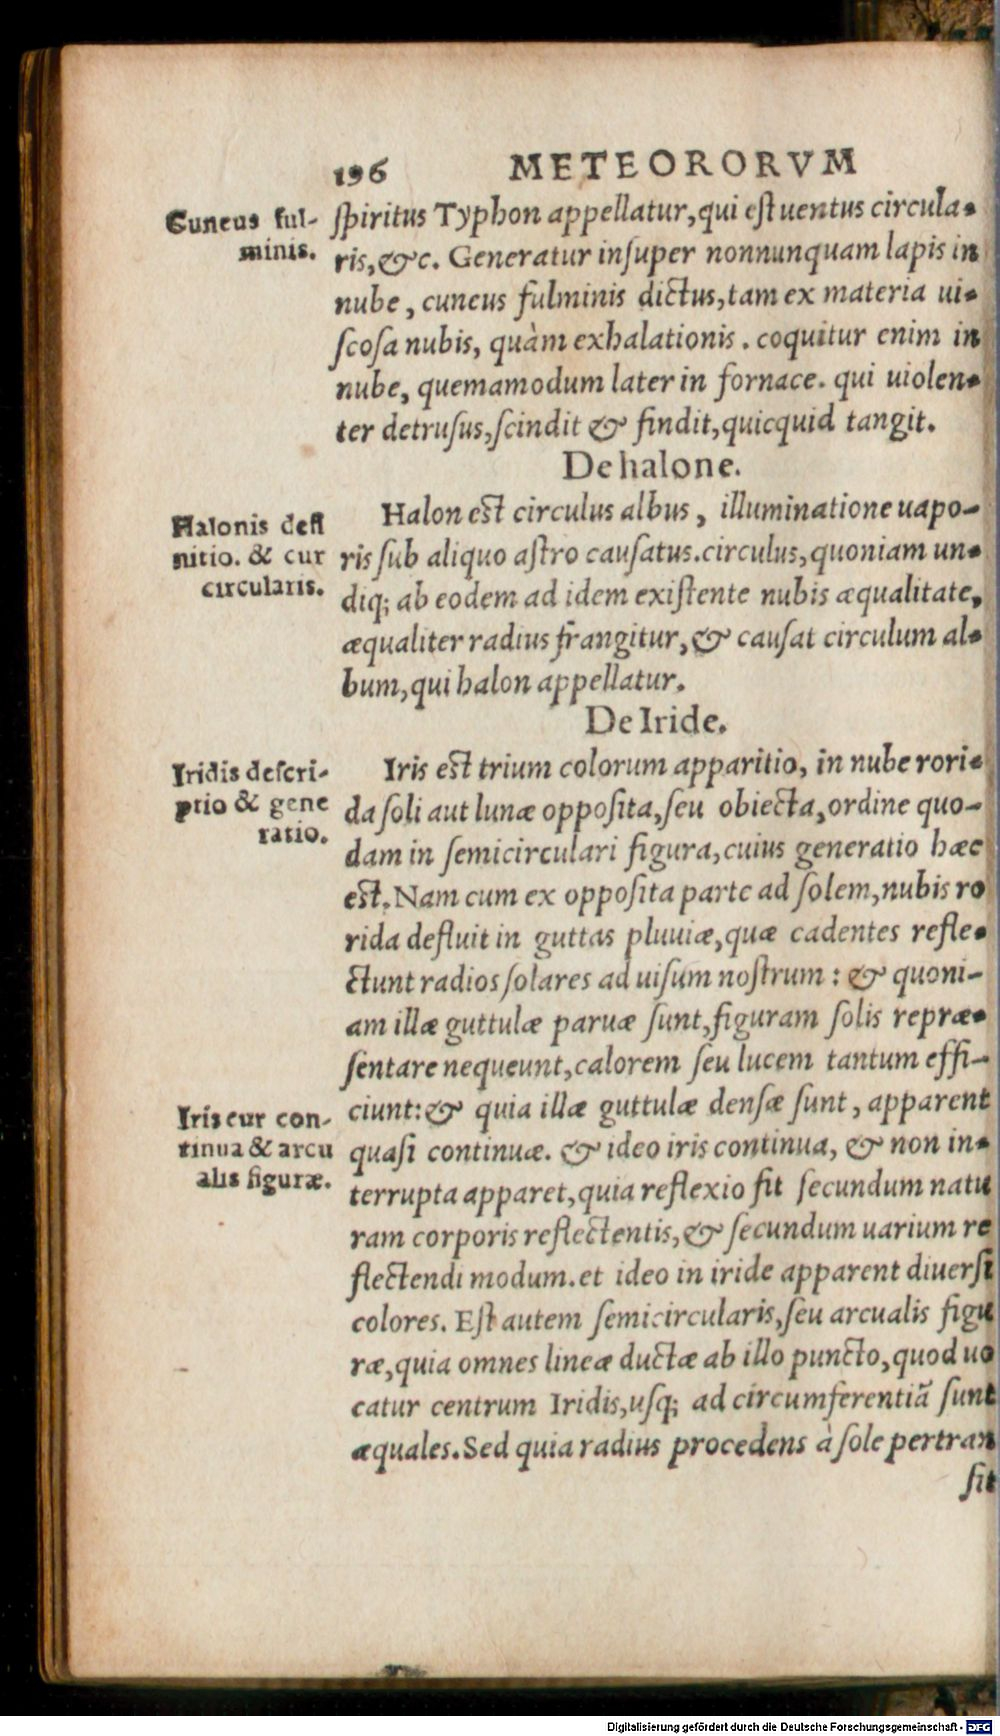 196 METEORORVM
Cuneus ful-
minis.
spiritus Typhon appellatur, qui est uentus circula-
ris, &c. Generatur insuper nonnunquam lapis in
nube, cuneus fulminis dictus, tam ex materia ui-
scosa nubis, quàm exhalationis. coquitur enim in
nube, quemamodum later in fornace. qui uiolen-
ter detrusus, scindit & findit, quicquid tangit.
De halone.
Halonis defi
nitio. & cur
circularis.
Halon est circulus albus, illuminatione uapo-
ris sub aliquo astro causatus. circulus, quoniam un-
diq; ab eodem ad idem existente nubis æqualitate,
æqualiter radius frangitur, & causat circulum al-
bum, qui halon appellatur.
De Iride.
Iridis descri-
ptio & gene
ratio.
Iris est trium colorum apparitio, in nube rori-
da soli aut lunæ opposita, seu obiecta, ordine quo-
dam in semicirculari figura, cuius generatio hæc
est. Nam cum ex opposita parte ad solem, nubis ro
rida defluit in guttas pluuiæ, quæ cadentes refle-
ctunt radios solares ad uisum nostrum: & quoni-
am illæ guttulæ paruæ sunt, figuram solis repræ-
sentare nequeunt, calorem seu lucem tantum effi-
ciunt: & quia illæ guttulæ densæ sunt, apparent
quasi continuæ. & ideo iris continua, & non in-
terrupta apparet, quia reflexio fit secundum natu
ram corporis reflectentis, & secundum uarium re
flectendi modum. et ideo in iride apparent diuersi
colores. Est autem semicircularis, seu arcualis figu
ræ, quia omnes lineæ ductæ ab illo puncto, quod uo
catur centrum Iridis, usq; ad circumferentiã sunt
æquales. Sed quia radius procedens à sole pertran
sit
Iris cur con-
tinua & arcu
alis figuræ.
Digitalisierung gefördert durch die Deutsche Forschungsgemeinschaft - DFG